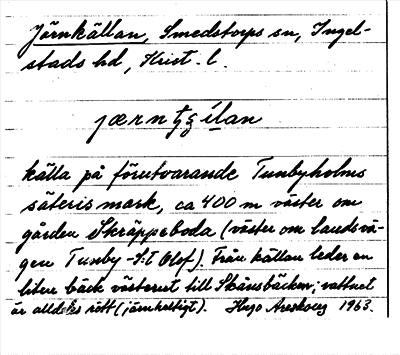 Järnkällan, Smedstorps sn, Ingel-
stads hd, Krist. l.
källa på förutvarande Tunbyholms
säteris mark, ca 400 m väster om
gården Skräppeboda (väster om landsvä-
gen Tunby-S:t Olof). Från källan leder en
liten bäck västerut till Skånsbäcken; vattnet
är alldeles rött (järnhaltigt). Hugo Areskoug 1963.